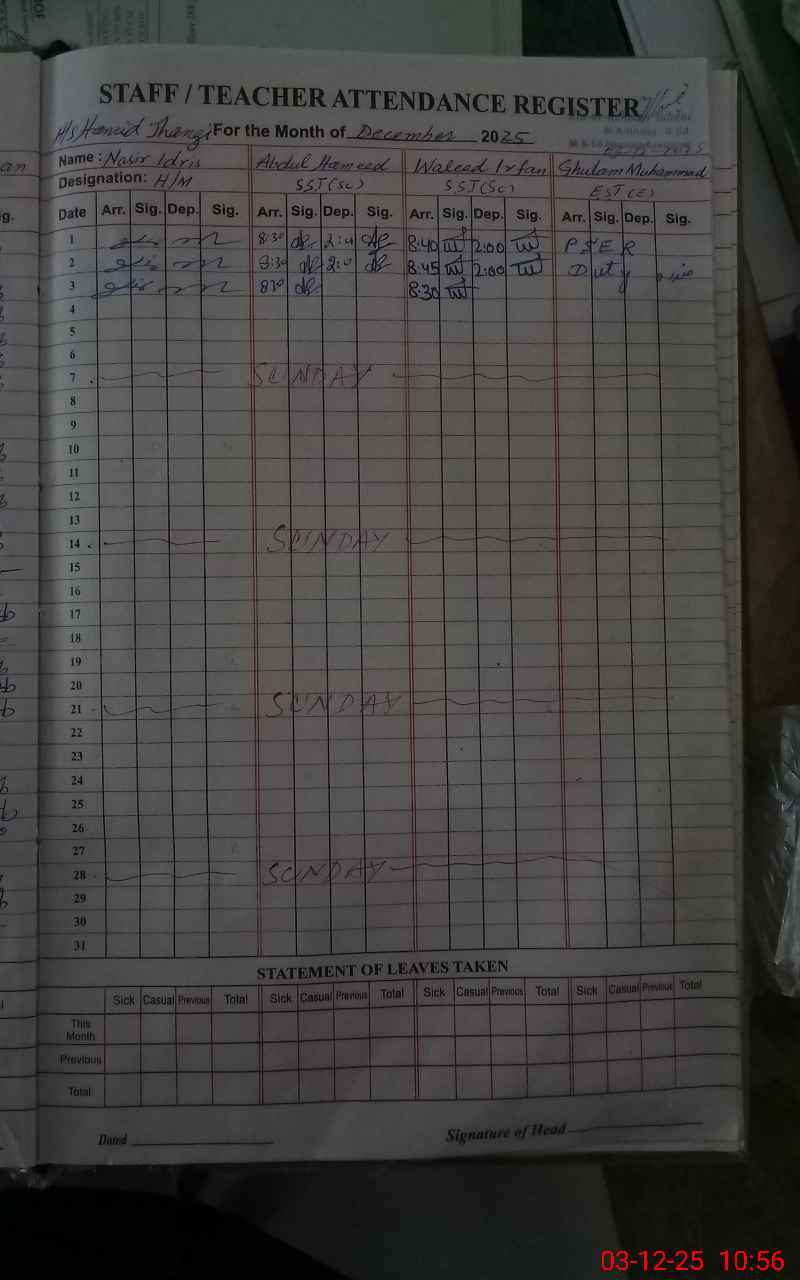 STAFF / TEACHER ATTENDANCE REGISTER
H/S Hameid Thangi For the Month of December 2025
Name : Nasir Idris Abdul Hameed Waleed Irfan Ghulam Muhammad
Designation: H/M S.S.T(Sc) S.S.T(Sc) EST(E)
Date Arr. Sig. Dep. Sig. Arr. Sig. Dep. Sig. Arr. Sig. Dep. Sig. Arr. Sig. Dep. Sig.
1 8:30 8:40 2:00 PSER
2 8:30 8:45 2:00 Duty
3 8:30
4
5
6
7 SUNDAY
8
9
10
11
12
13
14 SUNDAY
15
16
17
18
19
20
21 SUNDAY
22
23
24
25
26
27
28 SUNDAY
29
30
31
STATEMENT OF LEAVES TAKEN
Sick Casual Previous Total Sick Casual Previous Total Sick Casual Previous Total Sick Casual Previous Total
This
Month
Previous
Total
Dated
Signature of Head
03-12-25 10:56